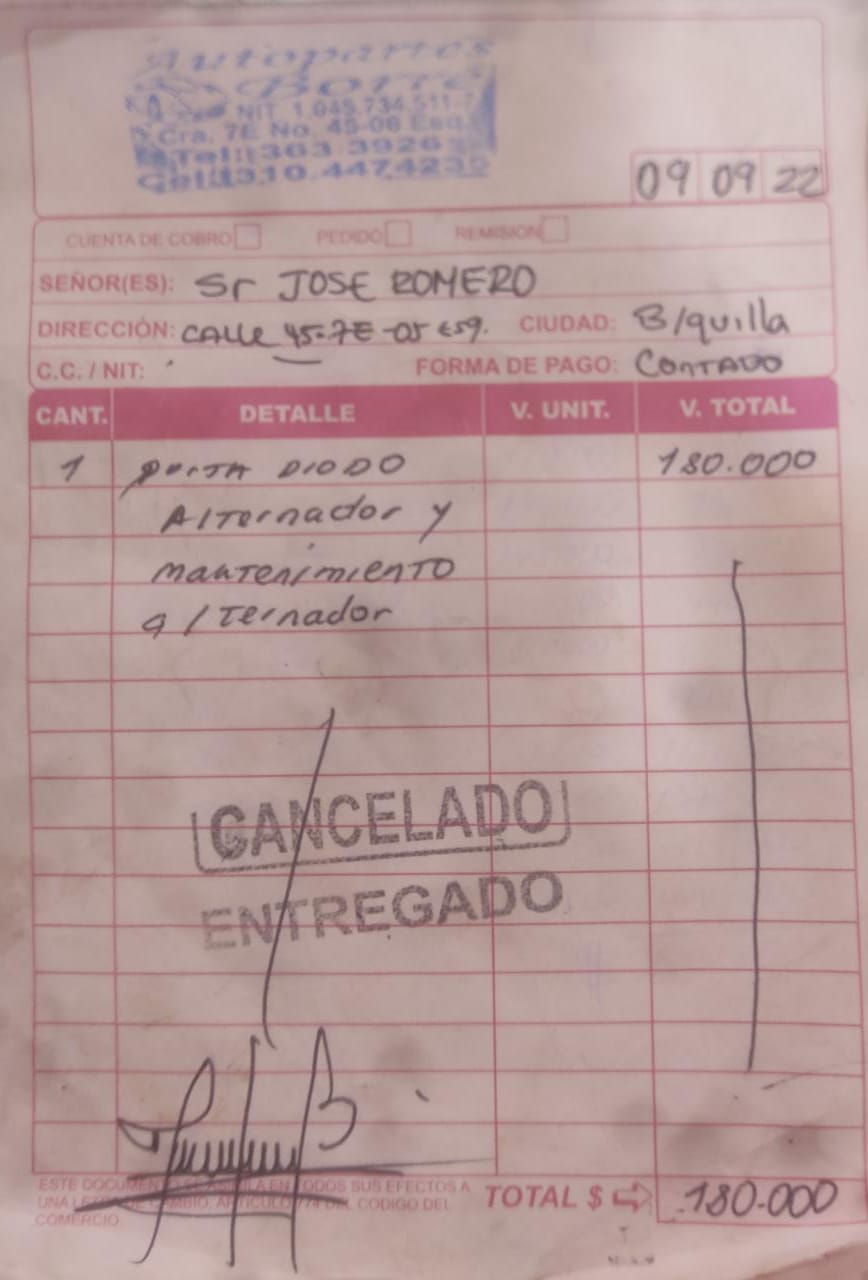 Autopartes
Borre
NIT 1.045.734.511-7
Cra. 7E No. 45-06 Esq.
Tel: 363.3926
Cel: 310.4474235
09 09 22
CUENTA DE COBRO PEDIDO REMISION
SEÑOR(ES): Sr JOSE ROMERO
DIRECCIÓN: CALLE 45-7E-05 CIUDAD: B/quilla
C.C. / NIT: FORMA DE PAGO: CONTADO
CANT. DETALLE V. UNIT. V. TOTAL
1 porta DIODO 180.000
Alternador y
mantenimiento
alternador
CANCELADO
ENTREGADO
ESTE DOCUMENTO SE ASIMILA EN TODOS SUS EFECTOS A
UNA LETRA DE CAMBIO, ARTICULO 774 DEL CODIGO DEL
COMERCIO
TOTAL $ 180.000